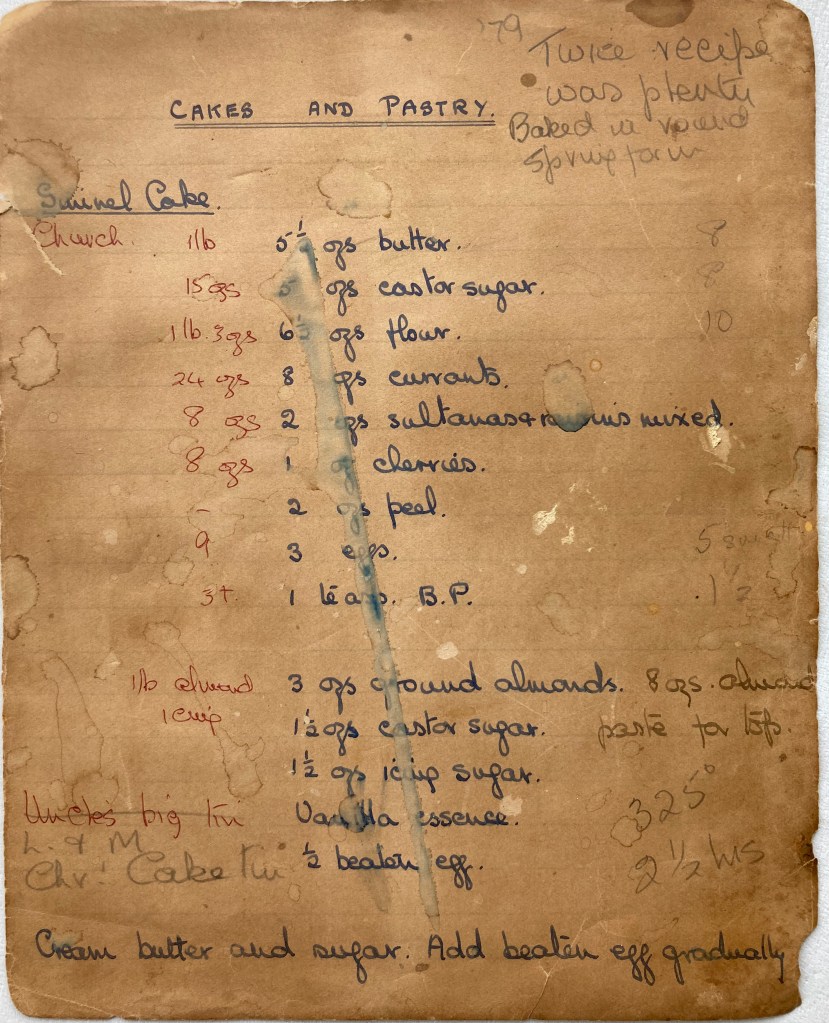 '79 Twice recipe
was plenty
Baked in round
Spring form
CAKES AND PASTRY.
Simnel Cake.
Church. 1lb 5½ ozs butter. 8
15 ozs 5 ozs castor sugar. 8
1 lb. 3 ozs 6½ ozs flour. 10
24 ozs 8 ozs currants.
8 ozs 2 ozs sultanas & raisins mixed.
8 ozs 1 oz cherries.
- 2 ozs peel.
9 3 eggs. 5 small
3t. 1 teasp. B.P. 1½
1lb almond 3 ozs ground almonds. 8 ozs. almond
1 icing 1½ ozs castor sugar. paste for top.
1½ ozs icing sugar.
Uncles big tin Vanilla essence. 325°
L. & M
Chr! Cake tin ½ beaten egg. 2 ½ hrs
Cream butter and sugar. Add beaten egg gradually